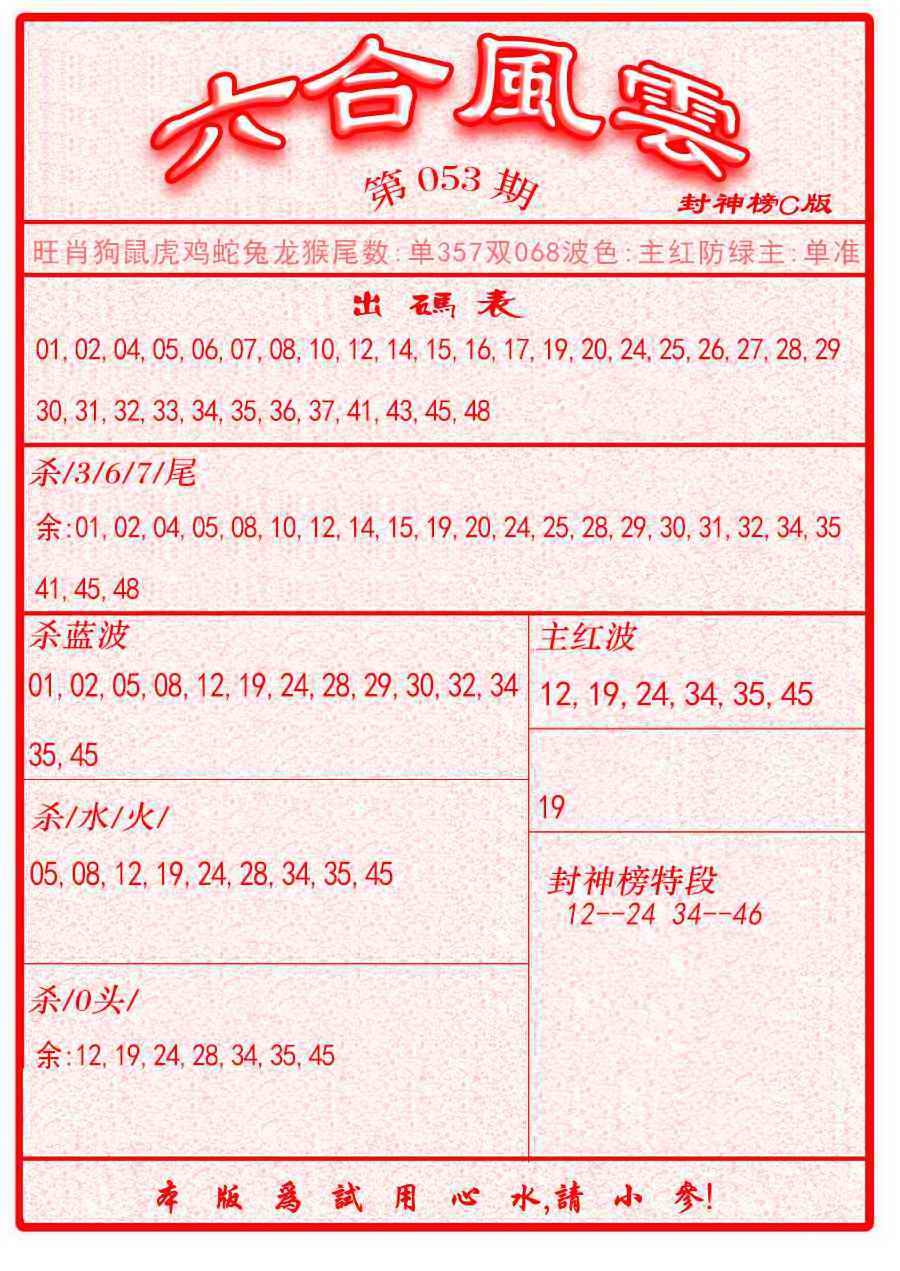 六合風雲
第053期
封神榜C版
旺肖狗鼠虎鸡蛇兔龙猴尾数:单357双068波色:主红防绿主:单准
出碼表
01,02,04,05,06,07,08,10,12,14,15,16,17,19,20,24,25,26,27,28,29
30,31,32,33,34,35,36,37,41,43,45,48
杀/3/6/7/尾
余:01,02,04,05,08,10,12,14,15,19,20,24,25,28,29,30,31,32,34,35
41,45,48
杀蓝波
01,02,05,08,12,19,24,28,29,30,32,34
35,45
杀/水/火/
05,08,12,19,24,28,34,35,45
杀/0头/
余:12,19,24,28,34,35,45
主红波
12,19,24,34,35,45
19
封神榜特段
12--24 34--46
本版爲試用心水,請小參!